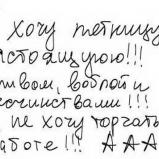 хочу пятницу
астоящую!!!
ивом, воблой и
есчинствами!!!
не хочу торчать
аботе!!! ААА